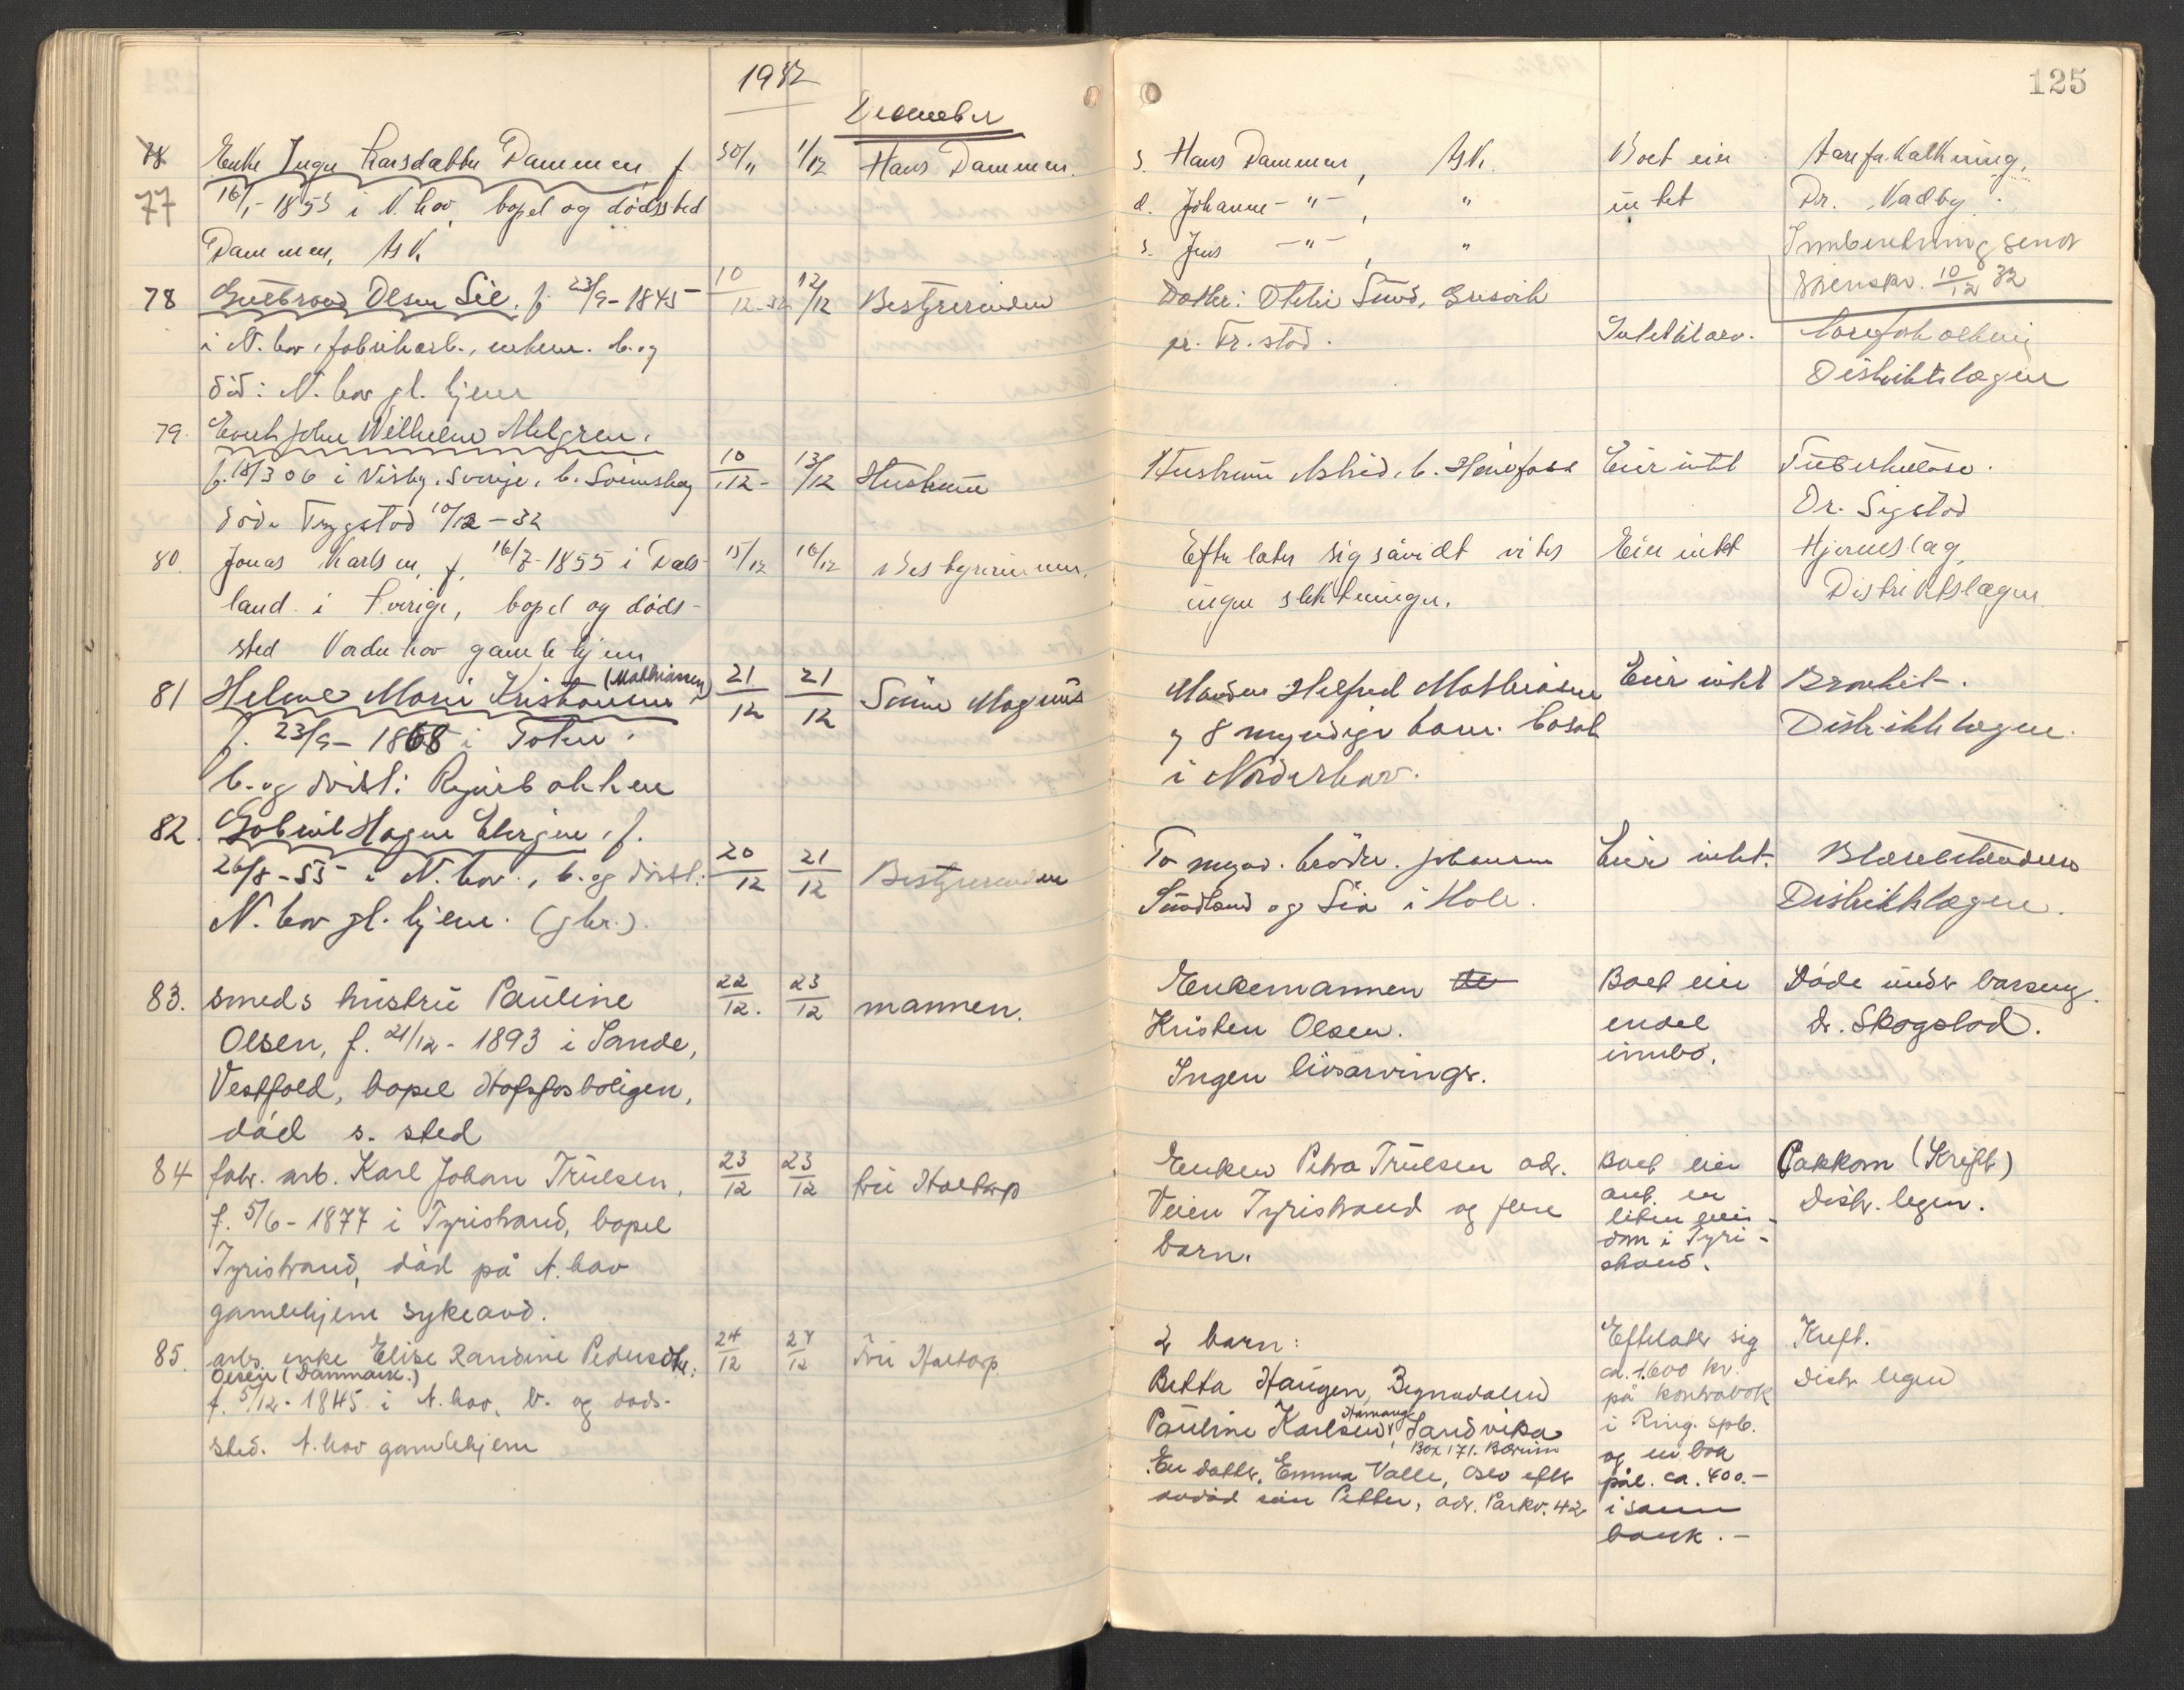 1932
December
125
78
77
Enke Inger Larsdatter Dammen f
16/1-1853 i N. hov, bopel og dødssted
Dammen, Ask.
30/11
1/12
Hans Dammen.
s. Hans Dammen, Ask.
d. Johanne - " - , "
s. Jens - " - , "
Boet eier
intet
Aarefa.kalkning,
Dr. Vadby.
Innberetning sendt
Skienskr. 10/12 32
78
Gulbrand Olsen Lie, f. 23/9-1845
i N. hov, fabrikarb., enkem. b. og
död: N. hov gl. hjem
10/12-32
12/12
Bestyrerinden
Datter: Otelie Sund,
pr. Fr.stad.
Intet å arv.
Distriktslægen
79.
John Wilhelm Ahlgren.
f. 18/3 06 i Visby, Sverige, b.
döde Trygstad 10/12-32
10/12-
13/12
Hustruen
Hustruen Astrid, b. Hönefoss
Eier intet
Tuberkulose.
Dr. Sigstad
80.
Jonas Karlsen, f. 16/7-1855 i Dals-
land i Sverige, bopel og døds-
sted Norderhov gamlehjem
15/12
16/12
Bestyrerinnen.
Efterlater sig såvidt vites
ingen slektninger.
Eier intet
Hjerneslag,
Distriktslægen.
81
Helme Marie Kristiansen (Mathiassen)
f. 23/9-1868 i Toten.
b. og dödst:
21/12
21/12
Magnus
Manden Helfred Mathiasen
og 8 myndige barn. bosat
i Norderhov.
Eier intet
Bronkit.
Distriktslægen.
82.
Gabriel Hagen f.
26/8-55 i N. hov., b. og dödst:
N. hov gl. hjem.
20/12
21/12
Bestyrerinden
To mynd. brödre. Johansen
Sundland og Lia i Hole.
Eier intet.
Distriktslægen.
83.
smeds hustru Pauline
Olsen, f. 21/12-1893 i Sande,
Vestfold, bopel Hofsfosboligen,
død s. sted
22/12.
23/12
mannen.
Enkemannen
Kristen Olsen.
Ingen livsarvinger.
Boet eier
endel
innbo.
Døde under barseng.
dr. Skogstad.
84
fabr. arb. Karl Johan Trulsen,
f. 5/6-1877 i Tyristrand, bopel
Tyristrand, død på N. hov
gamlehjem sykeavd.
23/12
23/12
fru Haltorp
Enken Petra Trulsen adr.
Veien Tyristrand og flere
barn.
Boet eier
ant. en
liten eien-
dom i Tyri-
strand.
(Kreft)
Distr. legen.
85.
arb. enke Elise Randine Pedersdtr.
Olsen (Danmark.)
f. 5/12-1845 i N. hov, b. og døds-
sted. N. hov gamlehjem
24/12
27/12
Fru Haltorp
2 barn:
Betta Haugen, Begnadalen
Pauline Karlsen, Hamang Sandvika
Box 171. Bærum
En datter, Emma Valle, Oslo efter
avdød søn Petter, adr. Parkv. 42
Efterlater sig
ca. 1.600 kr.
på kontrabok
i Ring. spb.
og en bok
pål. ca. 400.-
i samme
bank.-
Kreft.
Distr. legen